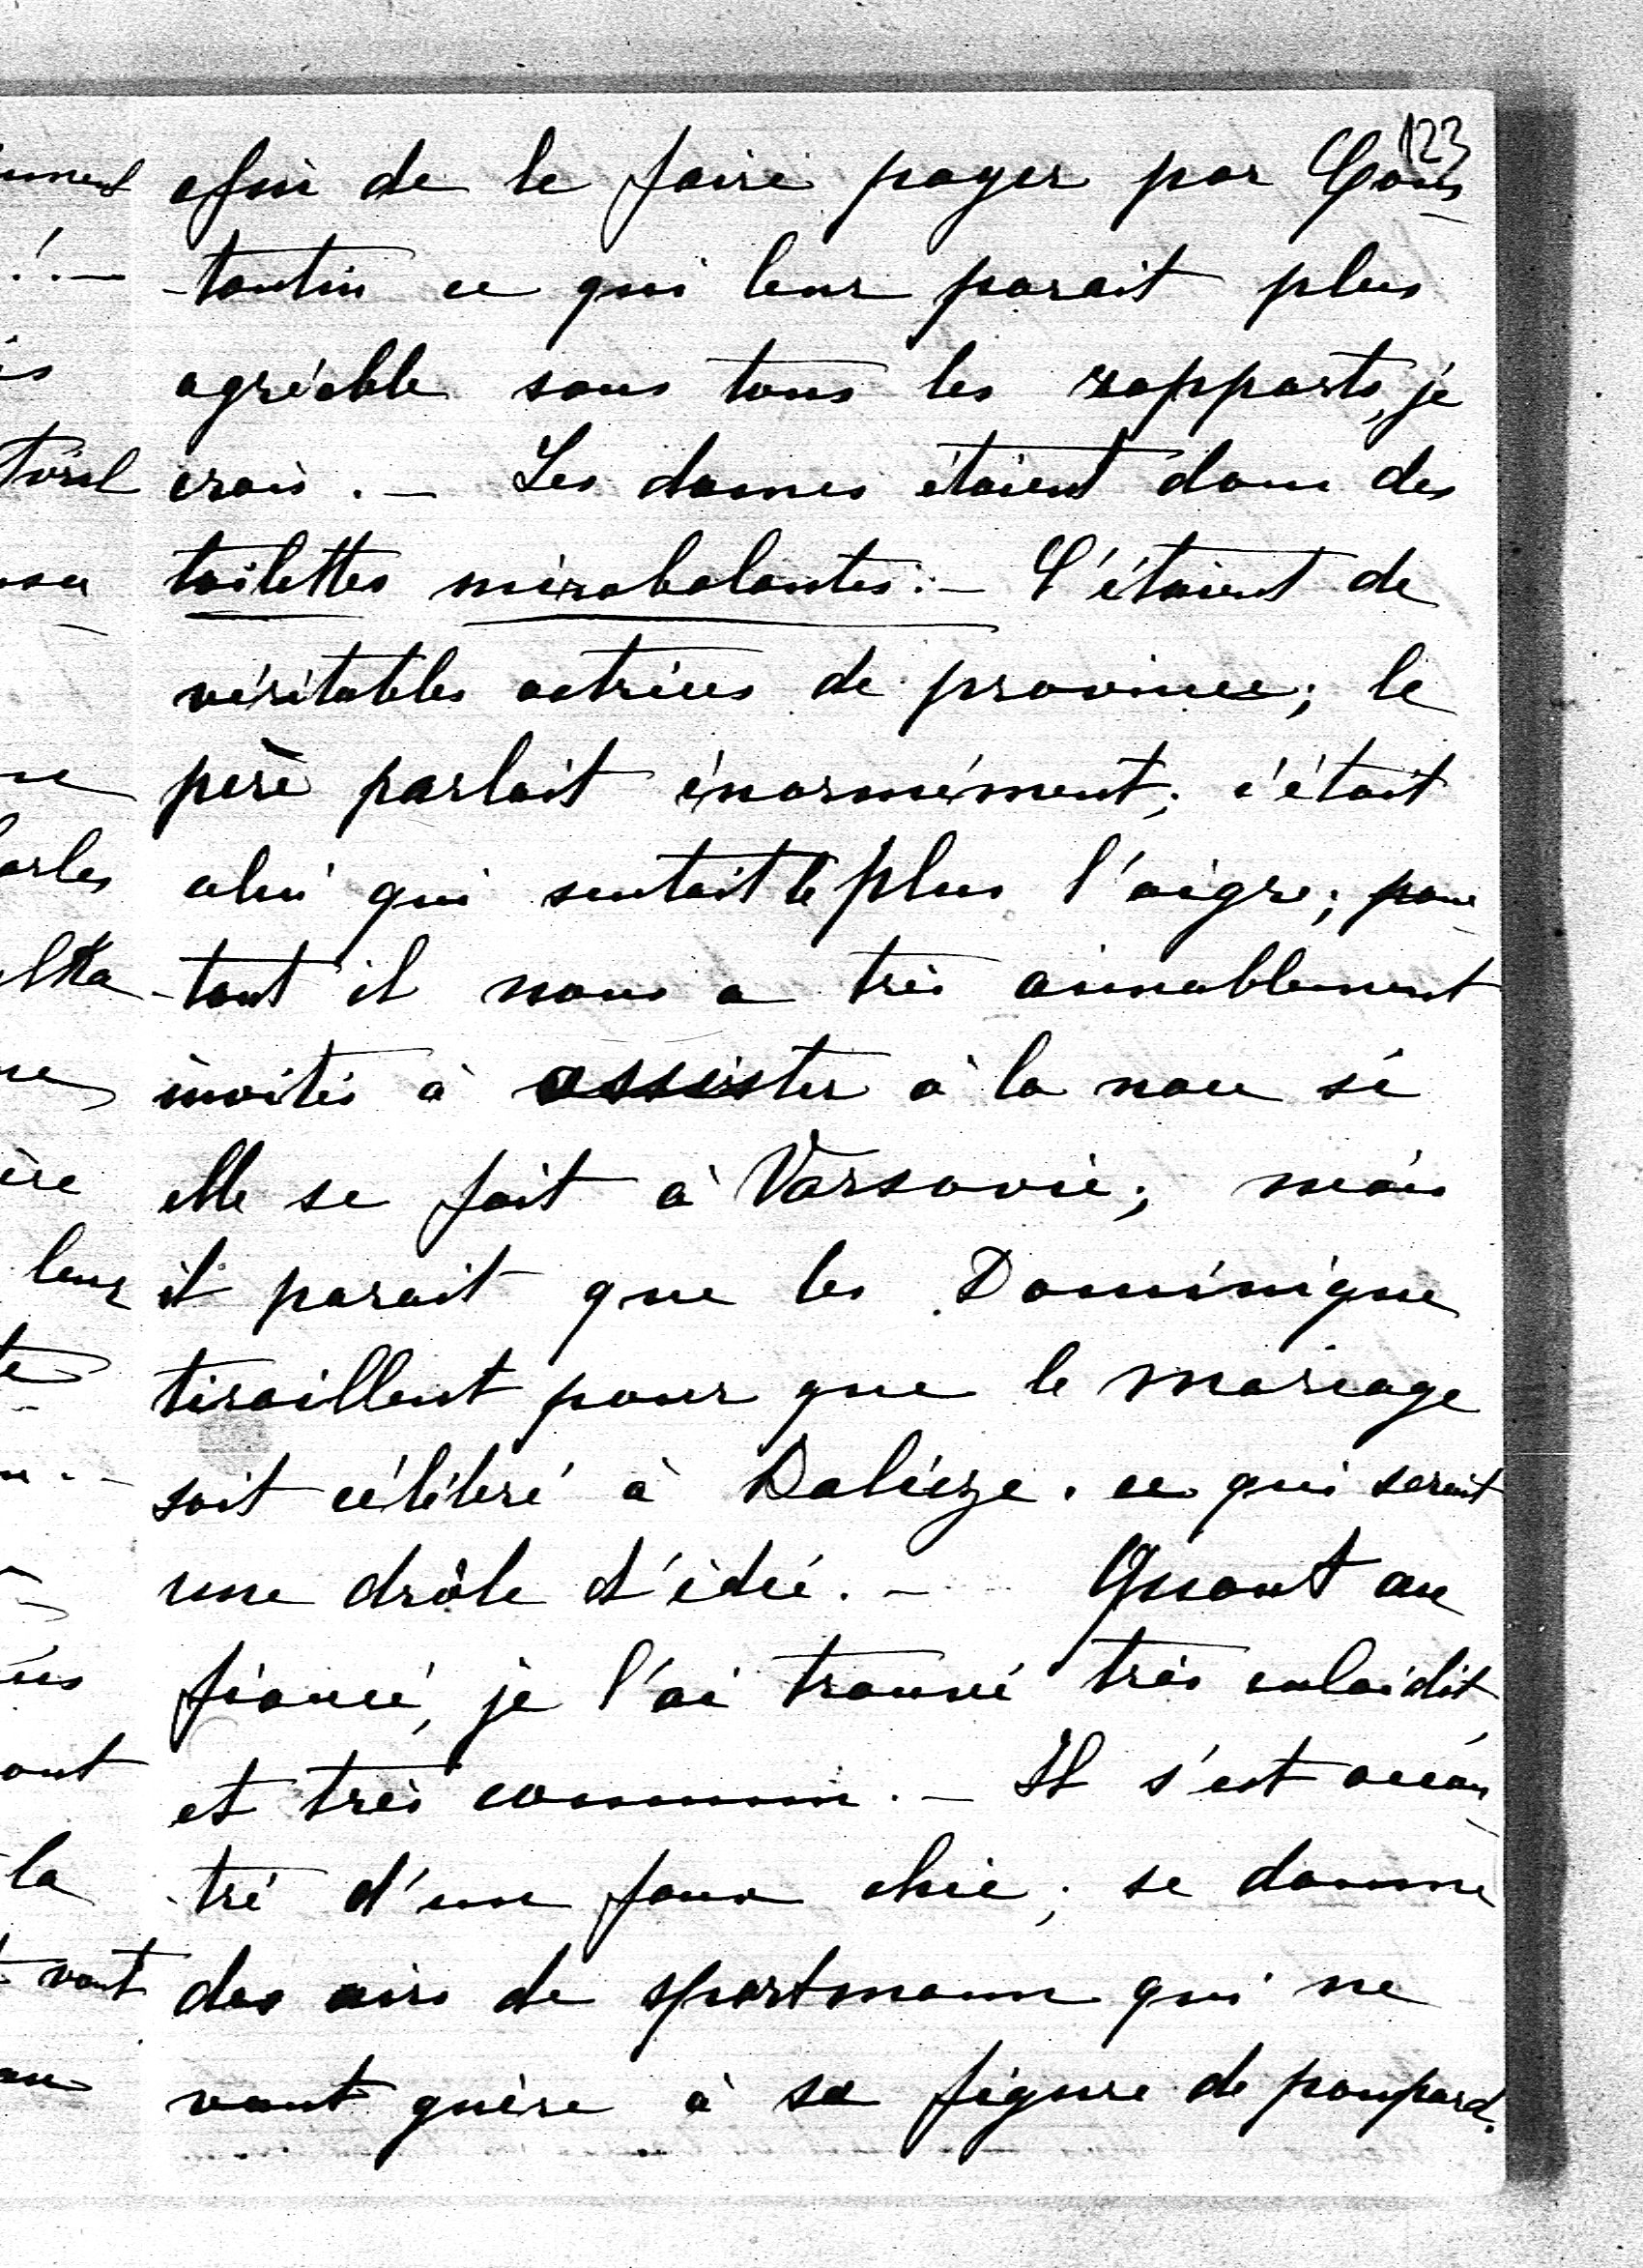 123
afin de le faire payer par Cons-
-tantin ce qui leur parait plus
agréable sous tous les rapports, je
crois. — Les dames étaient dans des
toilettes mirabolantes. — C'étaient de
véritables actrices de province; le
père parlait énormément; c'était
celui qui sentait le plus l'aigre; pour-
-tant il nous a très aimablement
invités à assister à la noce si
elle se fait à Varsovie; mais
il parait que les Dominique
tiraillent pour que le mariage
soit célébré à Dalieze. ce qui serait
une drôle d'idée. — Quant au
fiancé, je l'ai trouvé très enlaidit,
et très commun. — Il s'est accou-
-tré d'un faux chic; se donne
des airs de sportmann qui ne
vont guère à sa figure de poupard.
ument
!. —
is
ne
arles
ère
leur
ont
la
vont